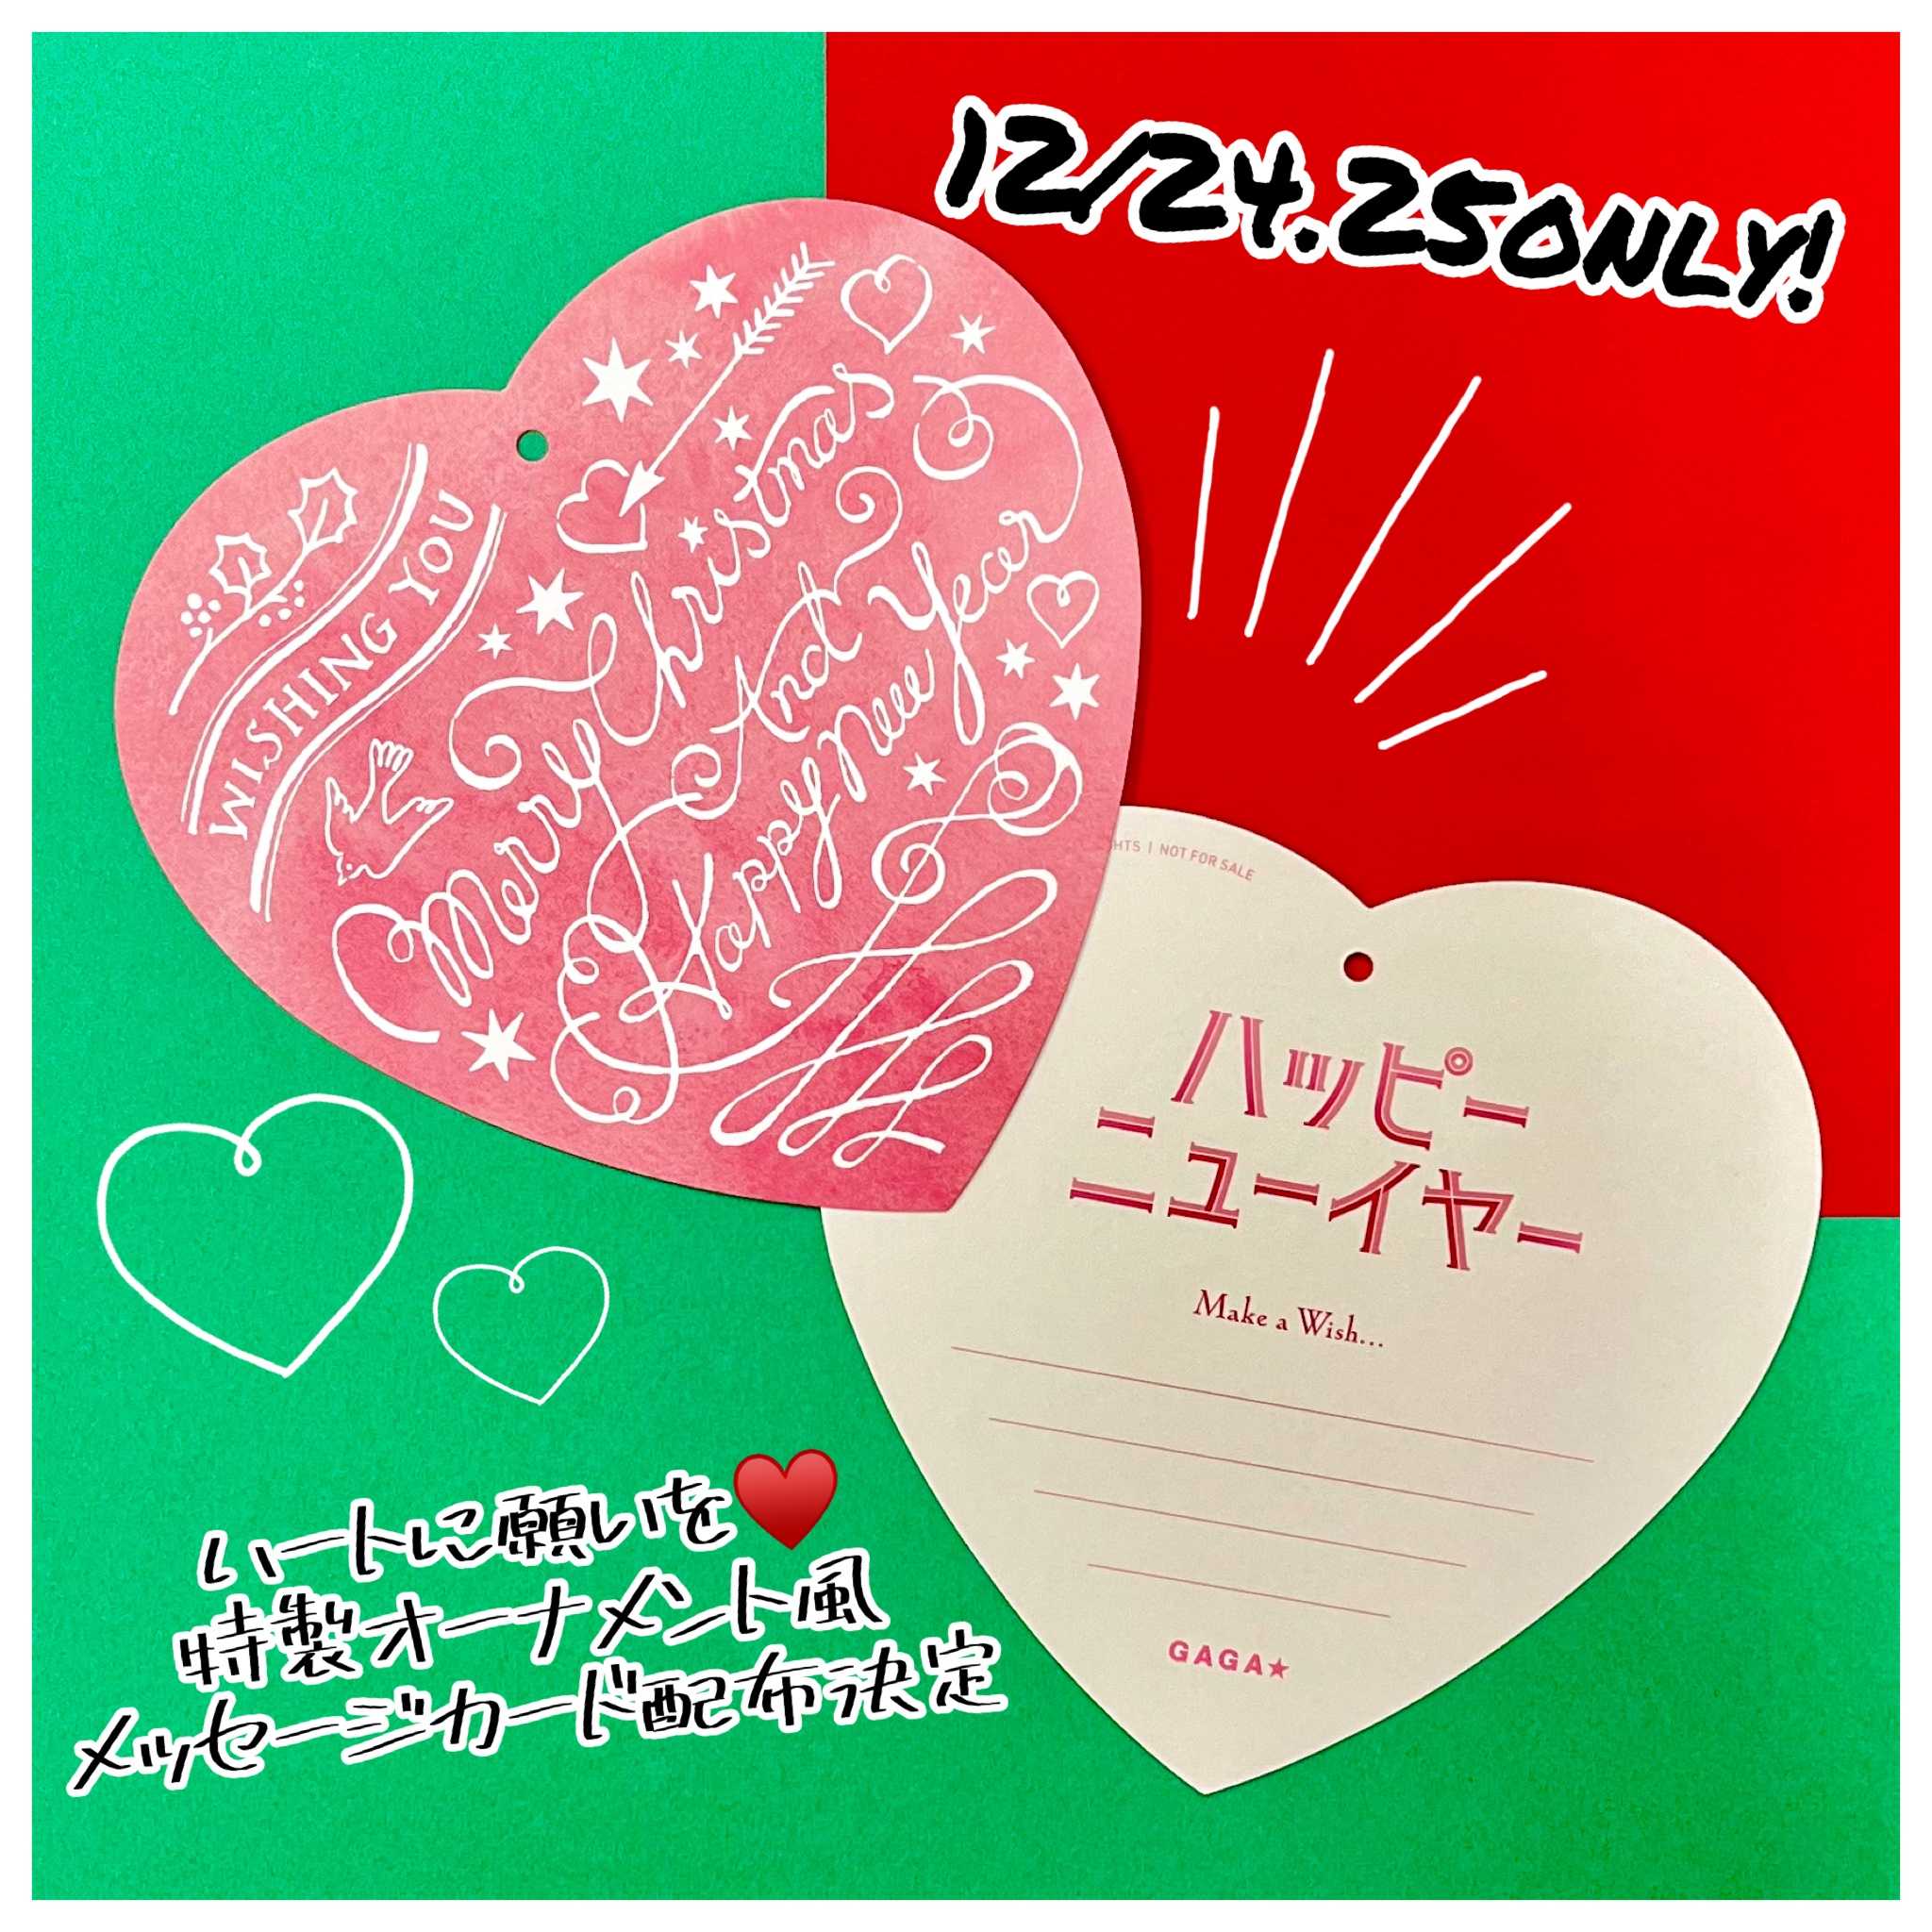 12/24.25ONLY!
WISHING YOU
Merry Christmas
And
Happy New Year
HTS | NOT FOR SALE
ハッピー
ニューイヤー
Make a Wish...
GAGA★
ハートに願いを♥
特製オーナメント風
メッセージカード配布決定